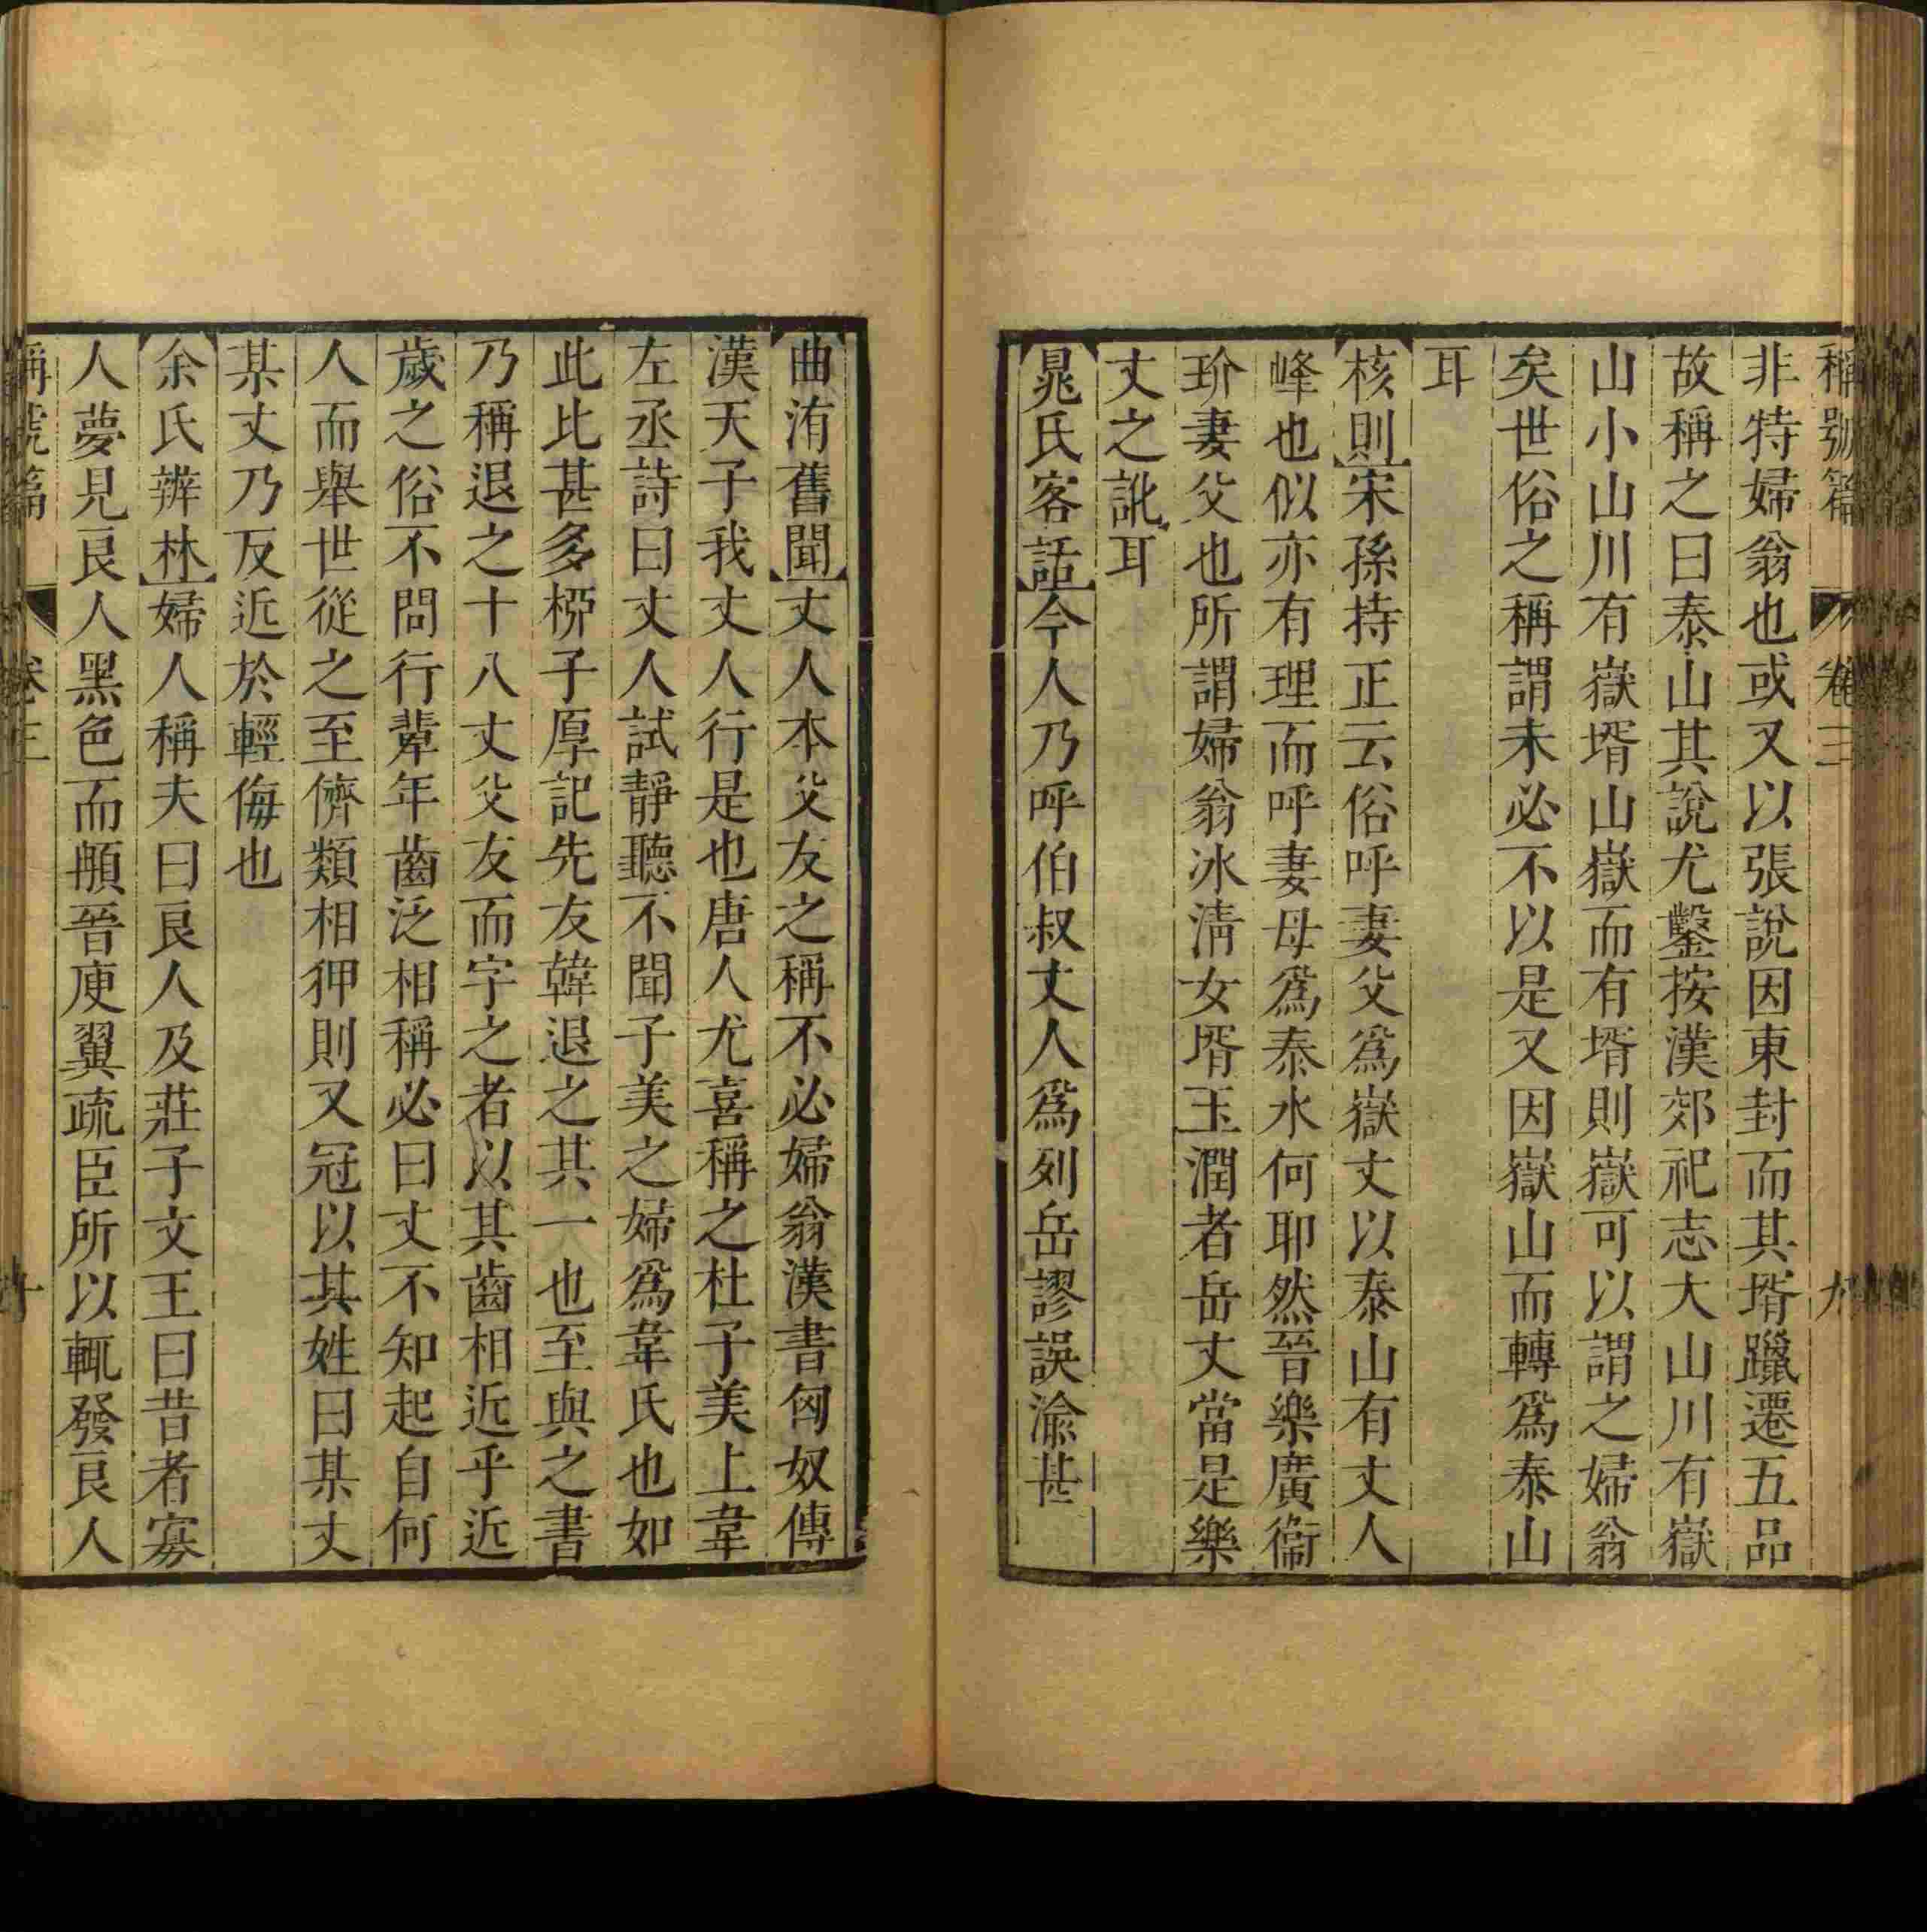 稱號篇 卷三 九
非特婦翁也或又以張說因東封而其壻躐遷五品
故稱之曰泰山其說尤鑿按漢郊祀志大山川有嶽
山小山川有嶽壻山嶽而有壻則嶽可以謂之婦翁
矣世俗之稱謂未必不以是又因嶽山而轉爲泰山
耳
核則宋孫持正云俗呼妻父爲嶽丈以泰山有丈人
峰也似亦有理而呼妻母爲泰水何耶然晉樂廣衞
玠妻父也所謂婦翁冰淸女壻玉潤者岳丈當是樂
丈之訛耳
晁氏客話今人乃呼伯叔丈人爲列岳謬誤渝甚
曲洧舊聞丈人本父友之稱不必婦翁漢書匈奴傳
漢天子我丈人行是也唐人尤喜稱之杜子美上韋
左丞詩曰丈人試靜聽不聞子美之婦爲韋氏也如
此比甚多栁子厚記先友韓退之其一也至與之書
乃稱退之十八丈父友而字之者以其齒相近乎近
歲之俗不問行輩年齒泛相稱必曰丈不知起自何
人而舉世從之至儕類相狎則又冠以其姓曰某丈
某丈乃反近於輕侮也
余氏辨林婦人稱夫曰良人及莊子文王曰昔者寡
人夢見良人黑色而䫇晉庾翼疏臣所以輒發良人
稱號篇 卷三 十